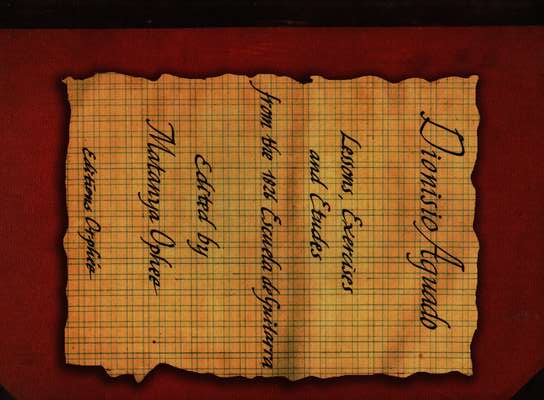 Dionisio Aguado
Lessons, Exercises
and Etudes
from the 1826 Escuela de Guitarra
Edited by
Matanya Ophee
Editions Orphée